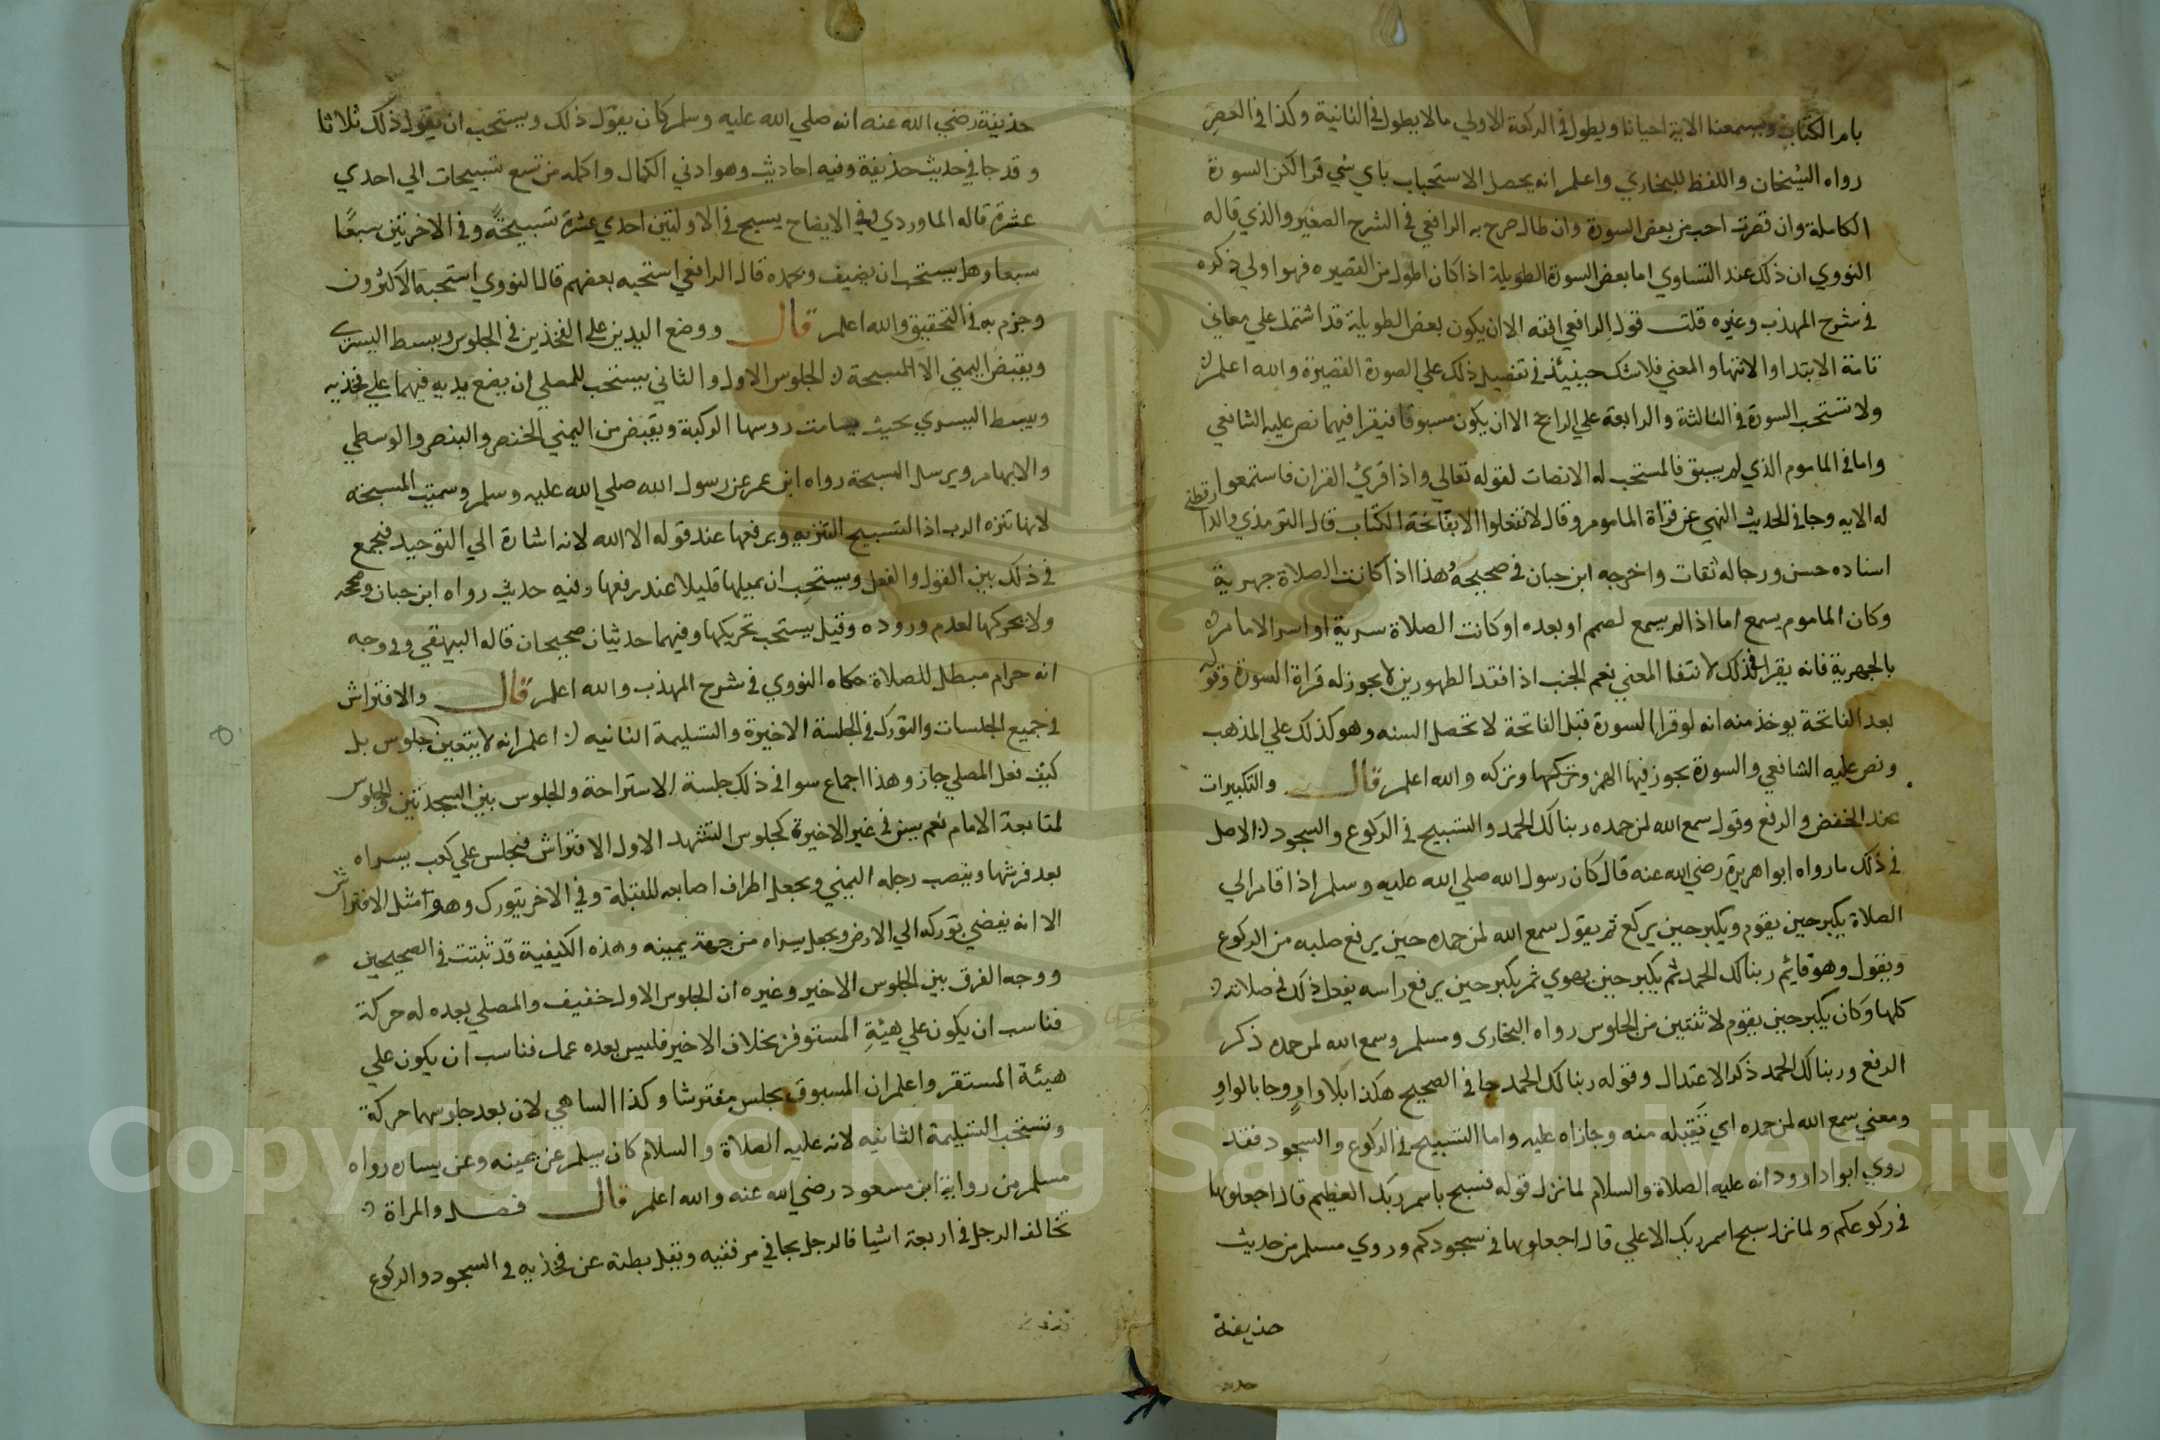 بام الكتاب ويسمعنا الاية احيانا ويطول في الركعة الاولي مالا يطول في الثانية وكذا في العصر
رواه الشيخان واللفظ للبخاري واعلم انه يحصل الاستحباب باي شي قرا لكن السورة
الكاملة وان قصرت احب من بعض السورة وان طال صرح به الرافعي في الشرح الصغير والذي قاله
النووي ان ذلك عند التساوي اما بعض السورة الطويلة اذا كان اطول من القصيره فهو اولي ذكره
في شرح المهذب وغيره قلت قول الرافعي افقه الا ان يكون بعض الطويلة قد اشتمل علي معاني
تامة الابتدا والانتها والمعني فلا شك حينئذ في تفضيل ذلك علي الصورة القصيرة والله اعلم
ولا تستحب السورة في الثالثة والرابعة علي الراجح الا ان يكون مسبوقا فيقرا فيهما نص عليه الشافعي
واما في الماموم الذي لم يسبق فالمستحب له الانصات لقوله تعالي واذا قري القران فاستمعوا
له الايه وجا في الحديث النهي عن قراة الماموم وقال لا تفعلوا الا بفاتحة الكتاب قال الترمذي والدارقطني
اسناده حسن ورجاله ثقات واخرجه ابن حبان في صحيحه وهذا اذا كانت الصلاة جهرية
وكان الماموم يسمع اما اذا لم يسمع لصمم او بعده او كانت الصلاة سرية او اسر الامام
بالجهرية فانه يقرا في ذلك لانتفا المعني نعم الجنب اذا فقد الطهورين لا يجوز له قراة السورة وقوله
بعد الفاتحة يوخذ منه انه لو قرا السورة قبل الفاتحة لا تحصل السنه وهو كذلك علي المذهب
ونص عليه الشافعي والسورة يجوز فيها الهمز وتركها وتركه والله اعلم قال والتكبيرات
عند الخفض والرفع وقول سمع الله لمن حمده ربنا لك الحمد والتسبيح في الركوع والسجود الاصل
في ذلك ما رواه ابو اهريرة رضي الله عنه قال كان رسول الله صلي الله عليه وسلم اذا قام الي
الصلاة يكبر حين يقوم ويكبر حين يركع ثم يقول سمع الله لمن حمده حين يرفع صلبه من الركوع
ويقول وهو قايم ربنا لك الحمد ثم يكبر حين يهوي ثم يكبر حين يرفع راسه يفعل ذلك في صلاته
كلها وكان يكبر حين يقوم لاثنتين من الجلوس رواه البخاري ومسلم وسمع الله لمن حمده ذكر
الرفع وربنا لك الحمد ذكر الاعتدال وقوله ربنا لك الحمد جا في الصحيح هكذا بلا واو وجا بالواو
ومعني سمع الله لمن حمده اي تقبله منه وجازاه عليه واما التسبيح في الركوع والسجود فقد
روي ابوا داوود انه عليه الصلاة والسلام لما نزل قوله فسبح باسم ربك العظيم قال اجعلوها
في ركوعكم ولما نزل سبح اسم ربك الاعلي قال اجعلوها في سجودكم وروي مسلم من حديث
حذيفة
حذيفة رضي الله عنه انه صلي الله عليه وسلم كان يقول ذلك ويستحب ان يقول ذلك ثلاثا
وقد جا في حديث حذيفة وفيه احاديث وهو ادني الكمال واكمله من تسع تسبيحات الي احدي
عشرة قاله الماوردي وفي الايضاح يسبح في الاولتين احدي عشرة تسبيحة وفي الاخرتين سبعا
سبعا وهل يستحب ان يضيف وبحمده قال الرافعي استحبه بعضهم قال النووي استحبه الاكثرون
وجزم به في التحقيق والله اعلم قال ووضع اليدين علي الفخذين في الجلوس ويبسط اليسري
ويقبض اليمني الا المسبحة في الجلوس الاول والثاني يستحب للمصلي ان يضع يديه فيهما علي فخذيه
ويبسط اليسري بحيث يسامت روسها الركبة ويقبض من اليمني الخنصر والبنصر والوسطي
والابهام ويرسل المسبحة رواه ابن عمر عن رسول الله صلي الله عليه وسلم وسميت المسبحه
لانها تنزه الرب اذ التسبيح التنزيه ويرفعها عند قوله الا الله لانه اشارة الي التوحيد فيجمع
في ذلك بين القول والفعل ويستحب ان يميلها قليلا عند رفعها وفيه حديث رواه ابن حبان وصححه
ولا يحركها لعدم وروده وقيل يستحب تحريكها وفيهما حديثان صحيحان قاله البيهقي وفي وجه
انه حرام مبطل للصلاة حكاه النووي في شرح المهذب والله اعلم قال والافتراش
في جميع الجلسات والتورك في الجلسة الاخيرة والتسليمة الثانيه اعلم انه لا يتعين جلوس بل
كيف فعل المصلي جاز وهذا اجماع سوا في ذلك جلسة الاستراحة والجلوس بين السجدتين والجلوس
لمتابعة الامام نعم يسن في غير الاخيرة كجلوس التشهد الاول الافتراش فيجلس علي كعب يسراه
بعد فرشها وينصب رجله اليمني ويجعل اطراف اصابعه للقبلة وفي الاخر يتورك وهو مثل الافتراش
الا انه يفضي توركه الي الارض ويجعل يسراه من جهة يمينه وهذه الكيفية قد ثبتت في الصحيحين
ووجه الفرق بين الجلوس الاخير وغيره ان الجلوس الاول خفيف والمصلي بعده له حركة
فناسب ان يكون علي هيئة المستوفز بخلاف الاخير فليس بعده عمل فناسب ان يكون علي
هيئة المستقر واعلم ان المسبوق يجلس مفترشا وكذا الساهي لان بعد جلوسهما حركة
وتستحب التسليمة الثانيه لانه عليه الصلاة والسلام كان يسلم عن يمينه وعن يساره رواه
مسلم من رواية ابن مسعود رضي الله عنه والله اعلم قال فصل والمراة
تخالف الرجل في اربعة اشيا فالرجل يجافي مرفقيه ويقل بطنه عن فخذيه في السجود والركوع
Copyright © King Saud University